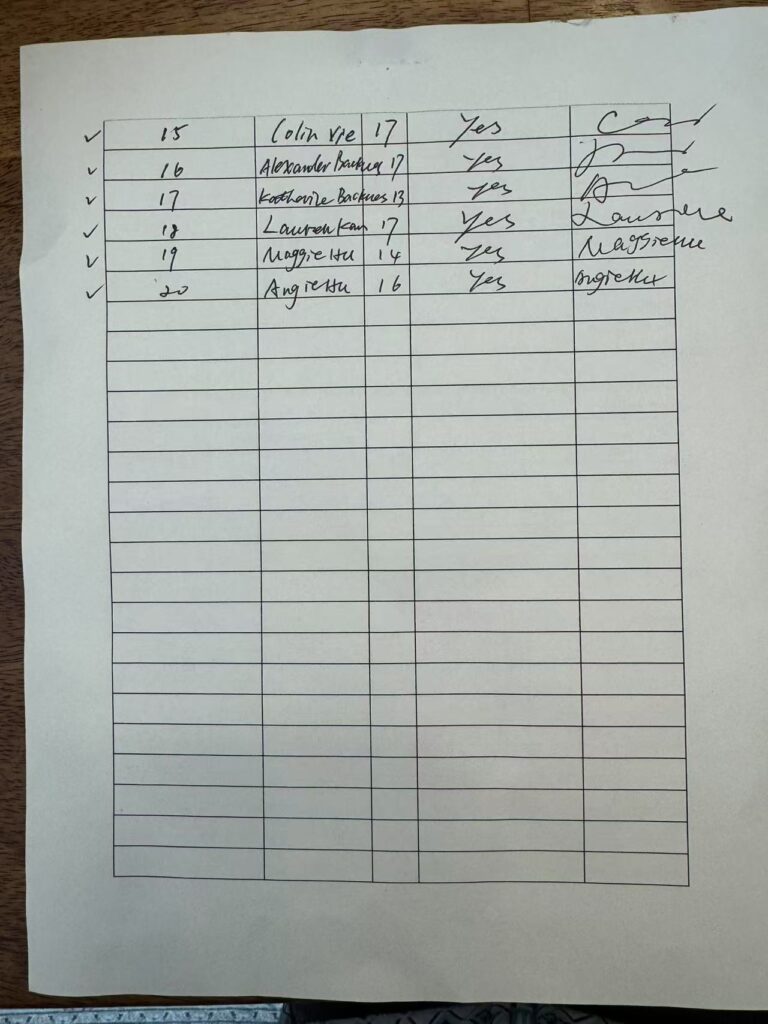 ✓ 15 Colin Vie 17 Yes
✓ 16 Alexander Backues 17 Yes
✓ 17 Backues 13 Yes
✓ 18 Lauren Kan 17 Yes
✓ 19 Maggie Hu 14 Yes Maggie Hu
✓ 20 Angie Hu 16 Yes Angie Hu